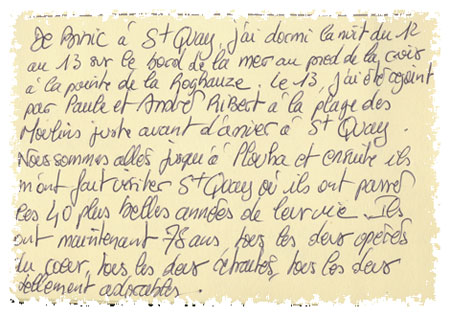 De Binic à St Quay, j'ai dormi la nuit du 12
au 13 sur le bord de la mer au pied de la croix
à la pointe de la Roghauze. Le 13, j'ai été rejoint
par Paule et André Ribert à la plage des
Moulins juste avant d'arriver à St Quay.
Nous sommes allés jusqu'à Plouha et ensuite ils
m'ont fait visiter St Quay où ils ont passé
les 40 plus belles années de leur vie. Ils
ont maintenant 78 ans, tous les deux opérés
du cœur, tous les deux retraités, tous les deux
tellement adorables.